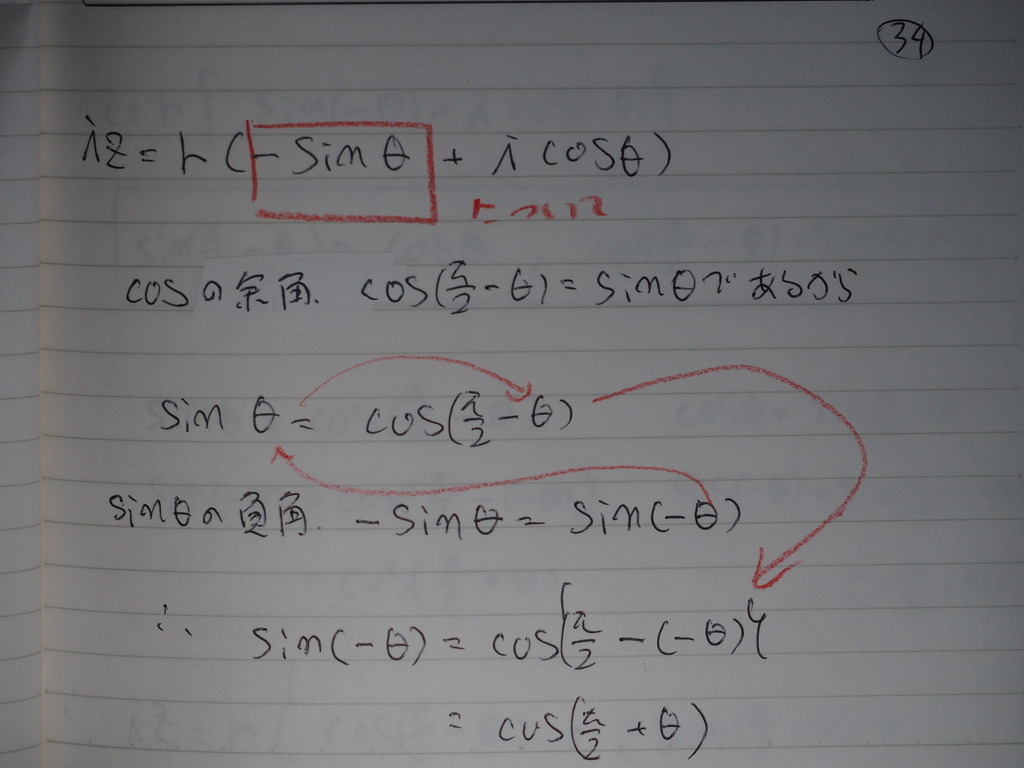 34
iz = r(-sinθ + i cosθ)
について
cosの余角. cos(π/2 - θ) = sinθであるから
sinθ = cos(π/2 - θ)
sinθの負角. -sinθ = sin(-θ)
∴ sin(-θ) = cos{π/2 - (-θ)}
= cos(π/2 + θ)